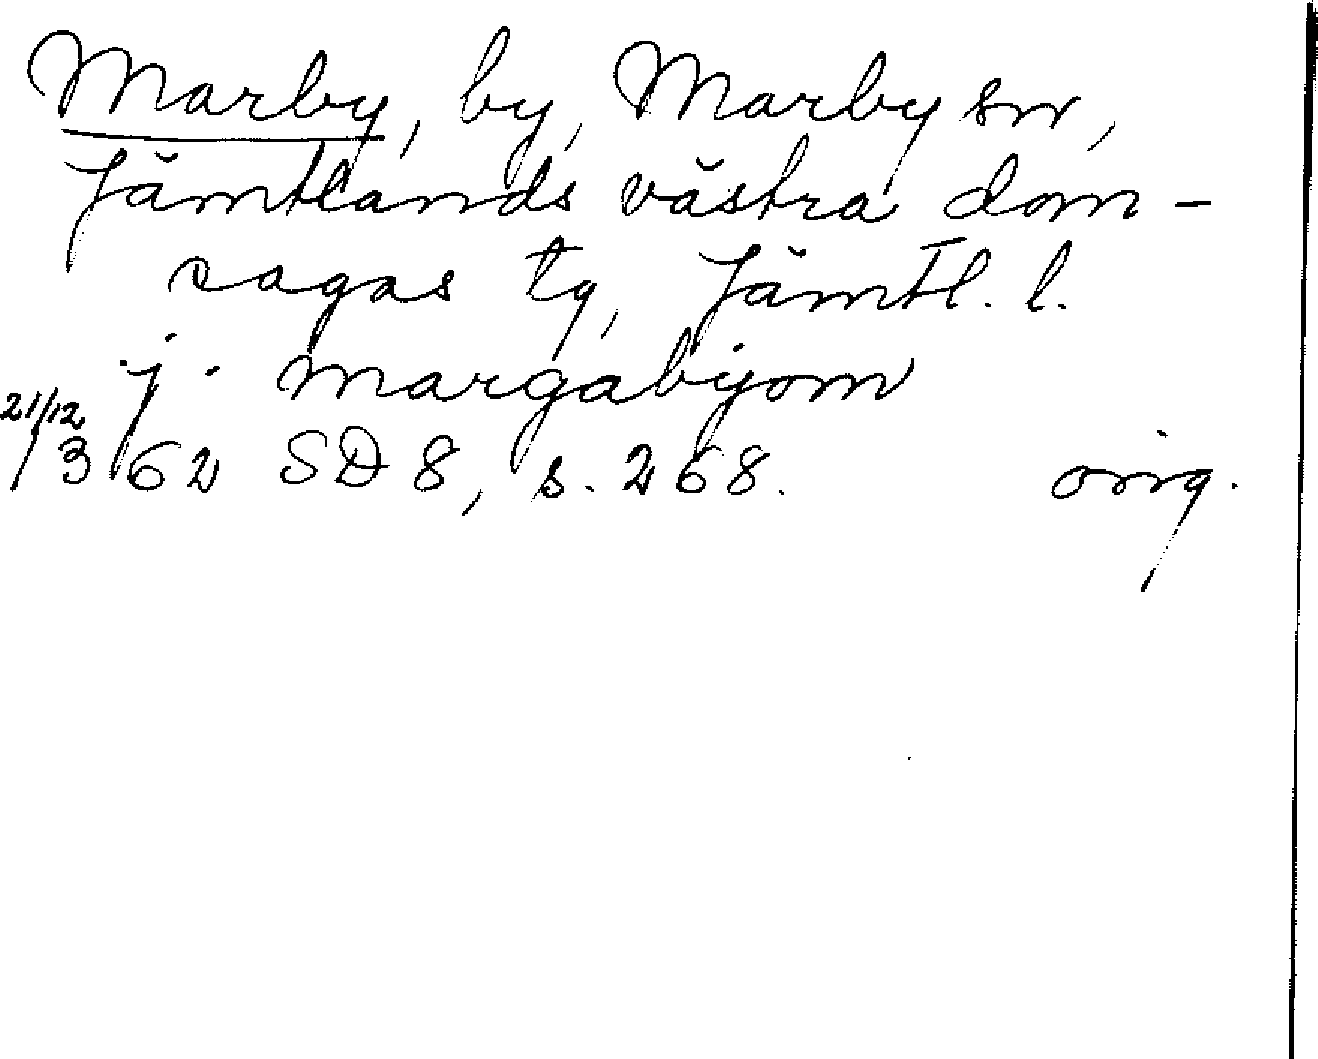 Marby, by, Marby sn,
Jämtlands västra dom-
sagas tg, Jämtl. l.
.j. margabyom
21/12
1362 SD 8, s. 268. orig.